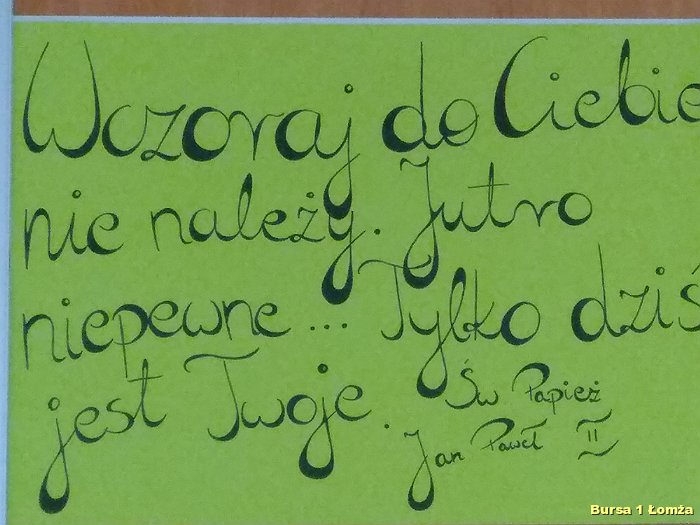 Wczoraj do Ciebie
nie należy. Jutro
niepewne... Tylko dziś
jest Twoje.
Św Papież
Jan Paweł II
Bursa 1 Łomża